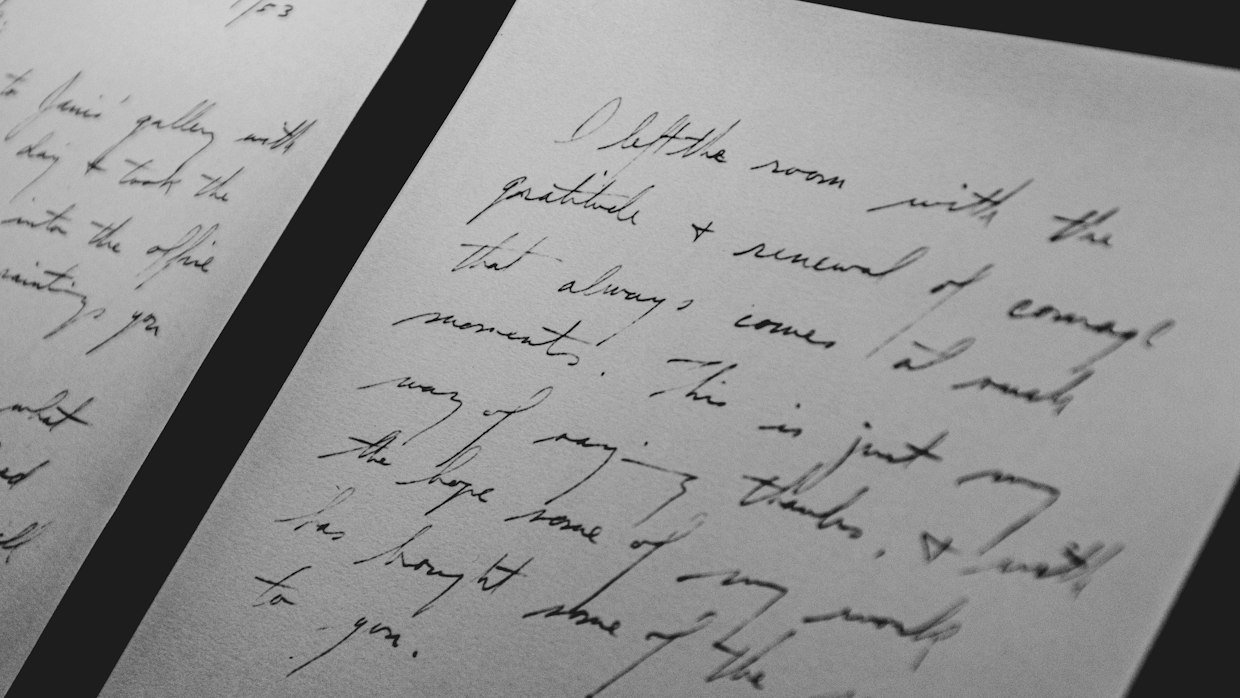 /53
to Janis' gallery with
day & took the
into the office
paintings you
what
ed
I left the room with the
gratitude & renewal of courage
that always comes at such
moments. This is just my
way of saying thanks, & with
the hope some of my work
has brought some of the
to you.